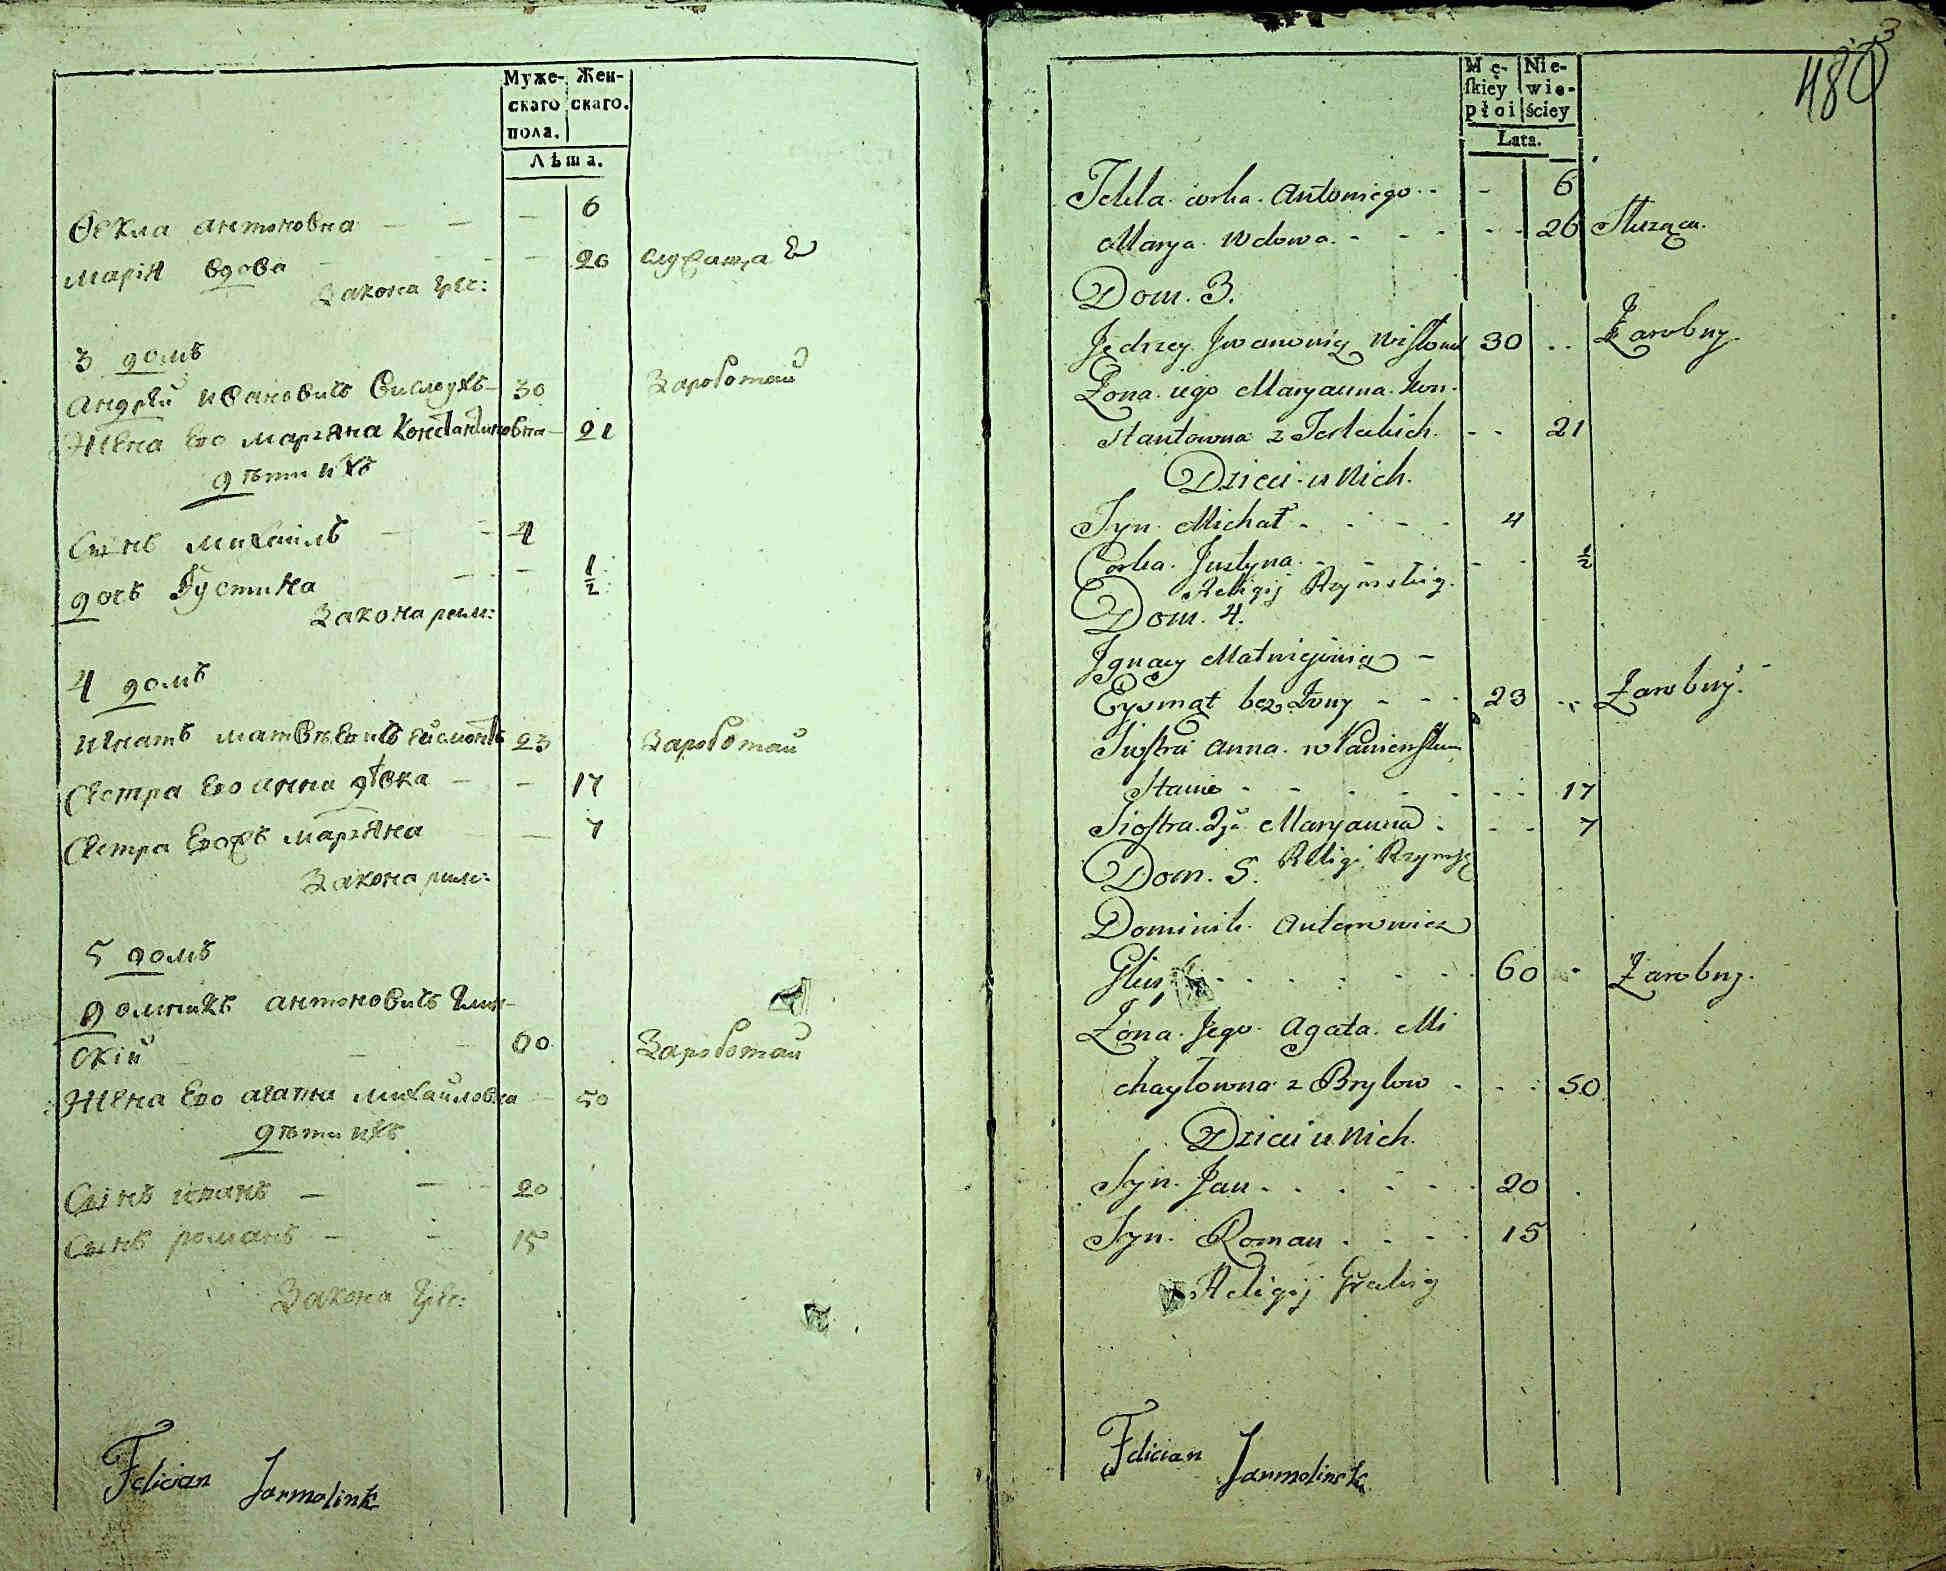 Муже- Жен-
скаго скаго.
пола.
Лѣта.
Ѳекла антоновна — — — 6
марія вдова — 26
закона грес:
3 домъ
андрей ивановичъ вислоухъ 30 заработай
жена его маріяна константиновна — 21
дѣти ихъ
сынъ михаилъ — 4
дочь Густина — — 1/2
закона рим:
4 домъ
игнатъ матвѣевичъ ейсмонтъ 23 заработай
сестра его анна дѣвка — — 17
сестра его маріяна — 7
закона рим:
5 домъ
доминикъ антоновичъ глин-
скій 60 заработай
жена его агатна михайловна — 50
дѣти ихъ
сынъ иванъ — — 20
сынъ романъ — - 15
закона грес:
Felician Jarmolinsk
3
480
Mę- Nie-
ſkiey wie-
płci ściey
Lata.
Tekla corka Antoniego - - 6
Marya Wdowa - - - - - 26 Służąca
Dom. 3.
Jędrzey Jwanowicz Wisłouch 30 .. Zarobny
Żona jego Maryanna Kon-
stantowna z Terleckich - - 21
Dzieci u Nich.
Syn Michał - - - 4
Corka Justyna - - - 1/2
Religij Rzymskiey.
Dom. 4.
Jgnacy Matwiejewicz -
Eysmąt bez Żony - - - 23 .. Zarobny
Siostra Anna w Panieńskim
Stanie - - - - - - 17
Siostra 2ga Maryanna - - - 7
Dom. 5. Religi Rzymsk
Dominik Antonowicz
60 - Zarobny.
Żona Jego Agata Mi
chayłowna z Brylow - - - 50
Dzieci u Nich.
Syn Jan - - - - - 20
Syn Roman - - - - 15
Religij Greckiey
Felician Jarmolinsk